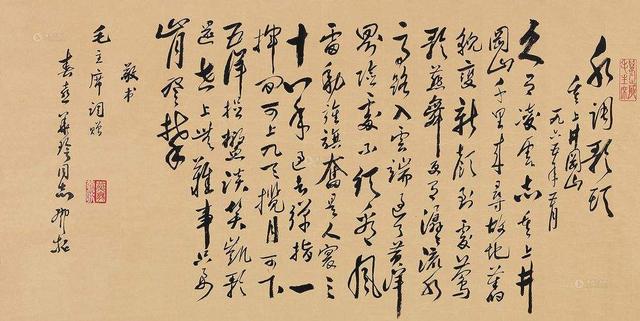 水调歌头
重上井冈山
一九六五年五月
久有凌云志重上井
冈山千里来寻故地旧
貌变新颜到处莺
歌燕舞更有潺潺流水
高路入云端过了黄洋
界险处不须看风
雷动旌旗奋是人寰三
十八年过去弹指一
挥间可上九天揽月可下
五洋捉鳖谈笑凯歌
还世上无难事只要
肯登攀
敬书
毛主席词赠
同志